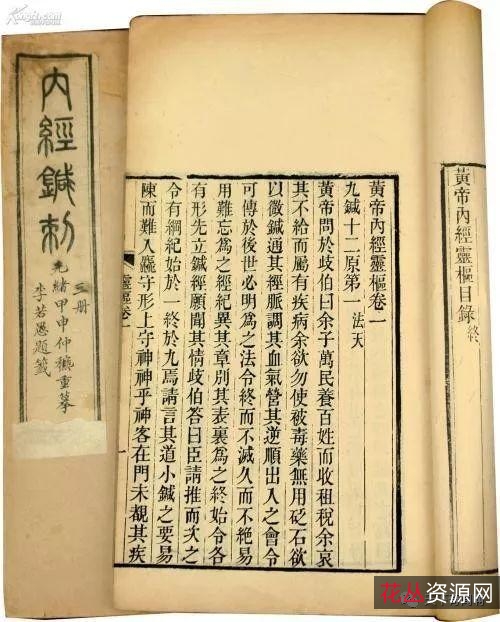 黃帝內經靈樞目錄終
黃帝內經靈樞卷一
九鍼十二原第一 法天
黃帝問於歧伯曰余子萬民養百姓而收租稅余哀
其不給而屬有疾病余欲勿使被毒藥無用砭石欲
以微鍼通其經脈調其血氣營其逆順出入之會令
可傳於後世必明為之法令終而不滅久而不絕易
用難忘為之經紀異其章別其表裏為之終始令各
有形先立鍼經願聞其情歧伯答曰臣請推而次之
令有綱紀始於一終於九焉請言其道小鍼之要易
陳而難入麤守形上守神神乎神客在門未覩其疾
靈樞卷一
內經鍼刺
三册
光緒甲申仲穐重摹
李若愚題籤
花丛资源网